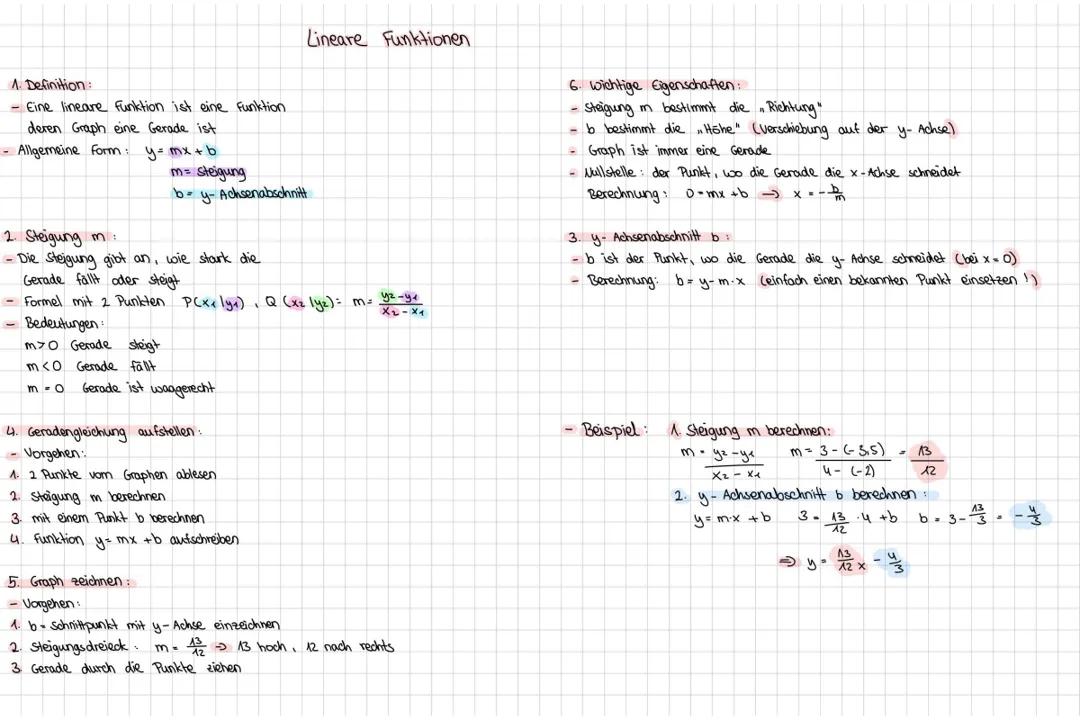 Lineare Funktionen
1. Definition:
- Eine lineare Funktion ist eine Funktion
deren Graph eine Gerade ist
- Allgemeine Form: y = mx + b
m = Steigung
b = y-Achsenabschnitt
2. Steigung m:
- Die Steigung gibt an, wie stark die
Gerade fällt oder steigt
- Formel mit 2 Punkten P(x₁|y₁), Q(x₂|y₂): m = (y₂-y₁)/(x₂-x₁)
- Bedeutungen:
m>0 Gerade steigt
m<0 Gerade fällt
m=0 Gerade ist waagerecht
4. Geradengleichung aufstellen:
- Vorgehen:
1. 2 Punkte vom Graphen ablesen
2. Steigung m berechnen
3. mit einem Punkt b berechnen
4. Funktion y=mx+b aufschreiben
5. Graph zeichnen:
- Vorgehen:
1. b = Schnittpunkt mit y-Achse einzeichnen
2. Steigungsdreieck: m = 13/12 → 13 hoch, 12 nach rechts
3. Gerade durch die Punkte ziehen
6. Wichtige Eigenschaften:
- Steigung m bestimmt die „Richtung"
- b bestimmt die „Höhe" (Verschiebung auf der y-Achse)
- Graph ist immer eine Gerade
- Nullstelle: der Punkt, wo die Gerade die x-Achse schneidet
Berechnung: 0=mx+b → x = -b/m
3. y-Achsenabschnitt b:
- b ist der Punkt, wo die Gerade die y-Achse schneidet (bei x=0)
- Berechnung: b = y-m·x (einfach einen bekannten Punkt einsetzen!)
- Beispiel: 1. Steigung m berechnen:
m = (y₂-y₁)/(x₂-x₁) m = (3-(-3,5))/(4-(-2)) = 13/12
2. y-Achsenabschnitt b berechnen:
y=m·x+b 3 = 13/12 ·4 +b b = 3-13/3 = -4/3
⇒ y = 13/12 x - 4/3